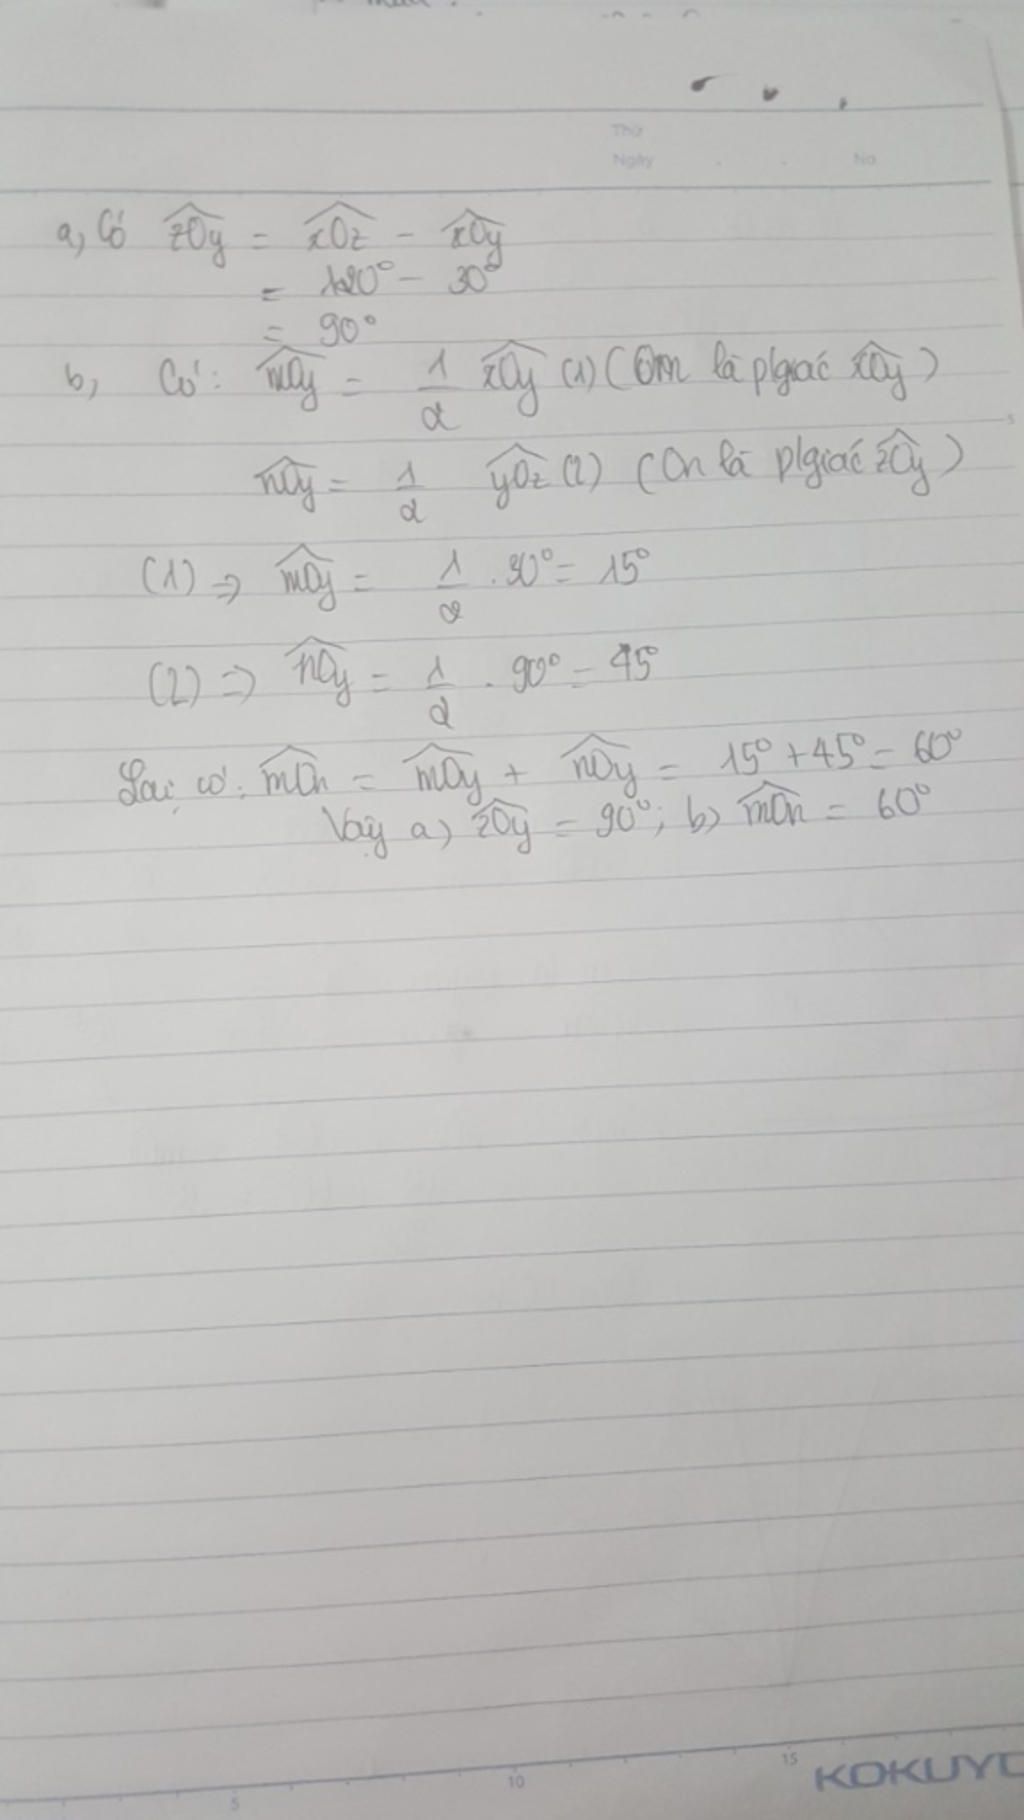 Thứ
Ngày . . No
a, Có zOy = xOz - xOy
= 120° - 30°
= 90°
b, Có: mOy = 1/2 xOy (1) (Om là p/giác xOy)
nOy = 1/2 yOz (2) (On là p/giác zOy)
(1) => mOy = 1/2 . 30° = 15°
(2) => nOy = 1/2 . 90° = 45°
Lại có: mOn = mOy + nOy = 15° + 45° = 60°
Vậy a) zOy = 90°; b) mOn = 60°
5
5 10 15 KOKUYO